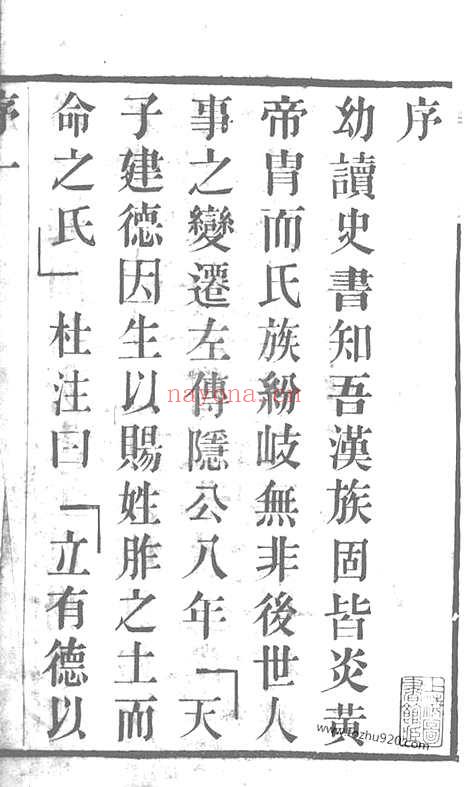 序
幼讀史書知吾漢族固皆炎黃
帝冑而氏族紛岐無非後世人
事之變遷左傳隱公八年「天
子建德因生以賜姓胙之土而
命之氏」杜注曰「立有德以
序一
nayona.cn
上海圖書館藏
www.fozhu920.com